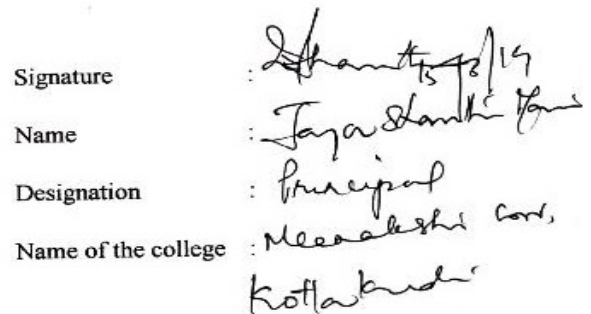 Signature :
Name : Jaya Shanthi Mani
Designation : Principal
Name of the college : Meenakshi
Kottakudi